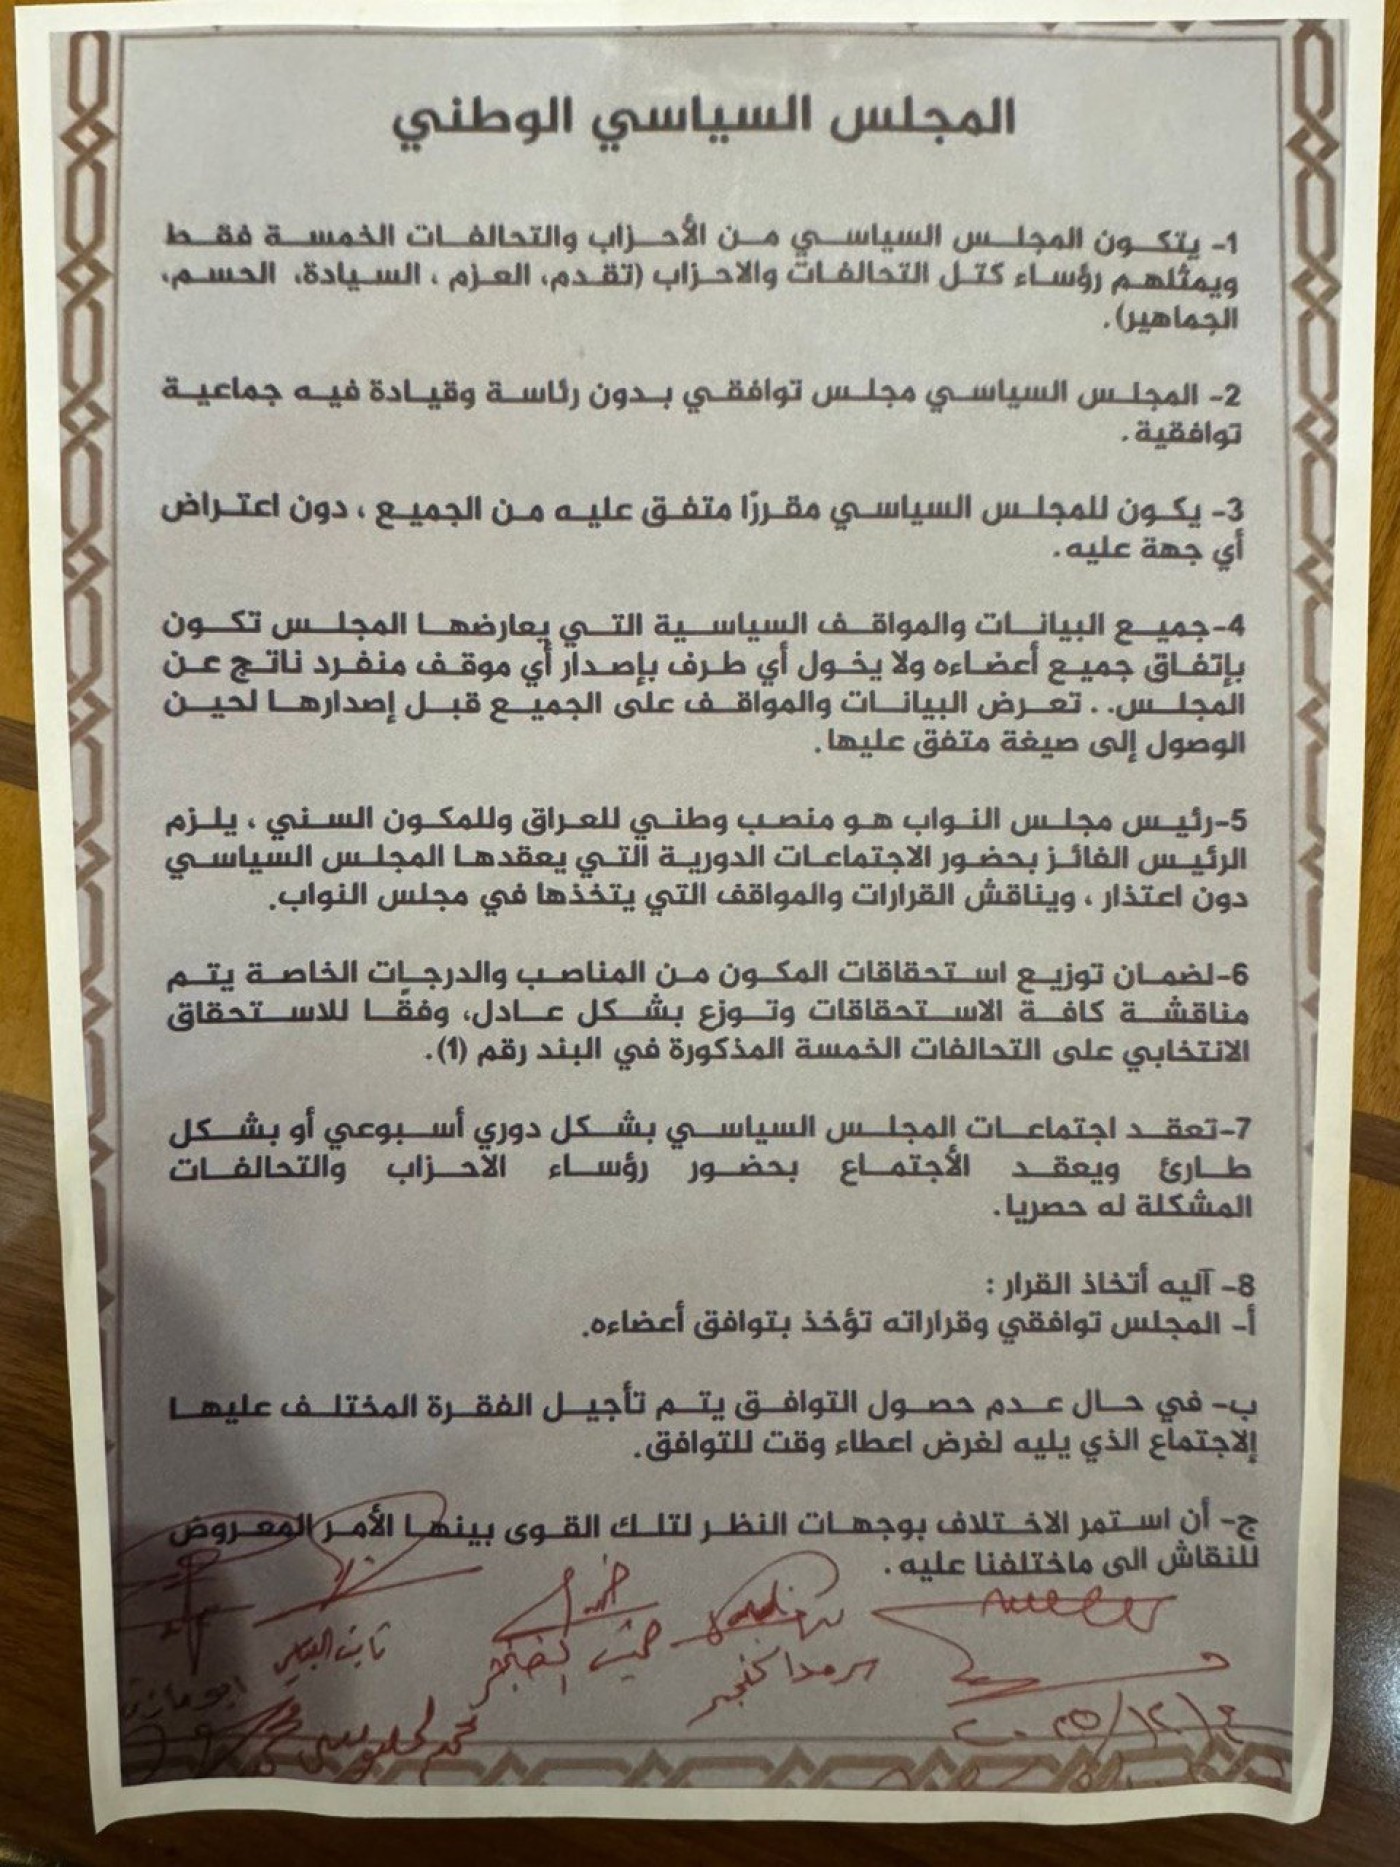 المجلس السياسي الوطني
1- يتكون المجلس السياسي من الأحزاب والتحالفات الخمسة فقط
ويمثلهم رؤساء كتل التحالفات والاحزاب (تقدم، العزم ، السيادة، الحسم،
الجماهير).
2- المجلس السياسي مجلس توافقي بدون رئاسة وقيادة فيه جماعية
توافقية.
3- يكون للمجلس السياسي مقررًا متفق عليه من الجميع ، دون اعتراض
أي جهة عليه.
4-جميع البيانات والمواقف السياسية التي يعارضها المجلس تكون
بإتفاق جميع أعضاءه ولا يخول أي طرف بإصدار أي موقف منفرد ناتج عن
المجلس. . تعرض البيانات والمواقف على الجميع قبل إصدارها لحين
الوصول إلى صيغة متفق عليها.
5-رئيس مجلس النواب هو منصب وطني للعراق وللمكون السني ، يلزم
الرئيس الفائز بحضور الاجتماعات الدورية التي يعقدها المجلس السياسي
دون اعتذار ، ويناقش القرارات والمواقف التي يتخذها في مجلس النواب.
6-لضمان توزيع استحقاقات المكون من المناصب والدرجات الخاصة يتم
مناقشة كافة الاستحقاقات وتوزع بشكل عادل، وفقًا للاستحقاق
الانتخابي على التحالفات الخمسة المذكورة في البند رقم (1).
7-تعقد اجتماعات المجلس السياسي بشكل دوري أسبوعي أو بشكل
طارئ ويعقد الأجتماع بحضور رؤساء الاحزاب والتحالفات
المشكلة له حصريا.
8- آليه أتخاذ القرار :
أ- المجلس توافقي وقراراته تؤخذ بتوافق أعضاءه.
ب- في حال عدم حصول التوافق يتم تأجيل الفقرة المختلف عليها
لإجتماع الذي يليه لغرض اعطاء وقت للتوافق.
ج- أن استمر الاختلاف بوجهات النظر لتلك القوى بينها الأمر المعروض
للنقاش الى ماختلفنا عليه.
ثابت العباسي
ابو مازن